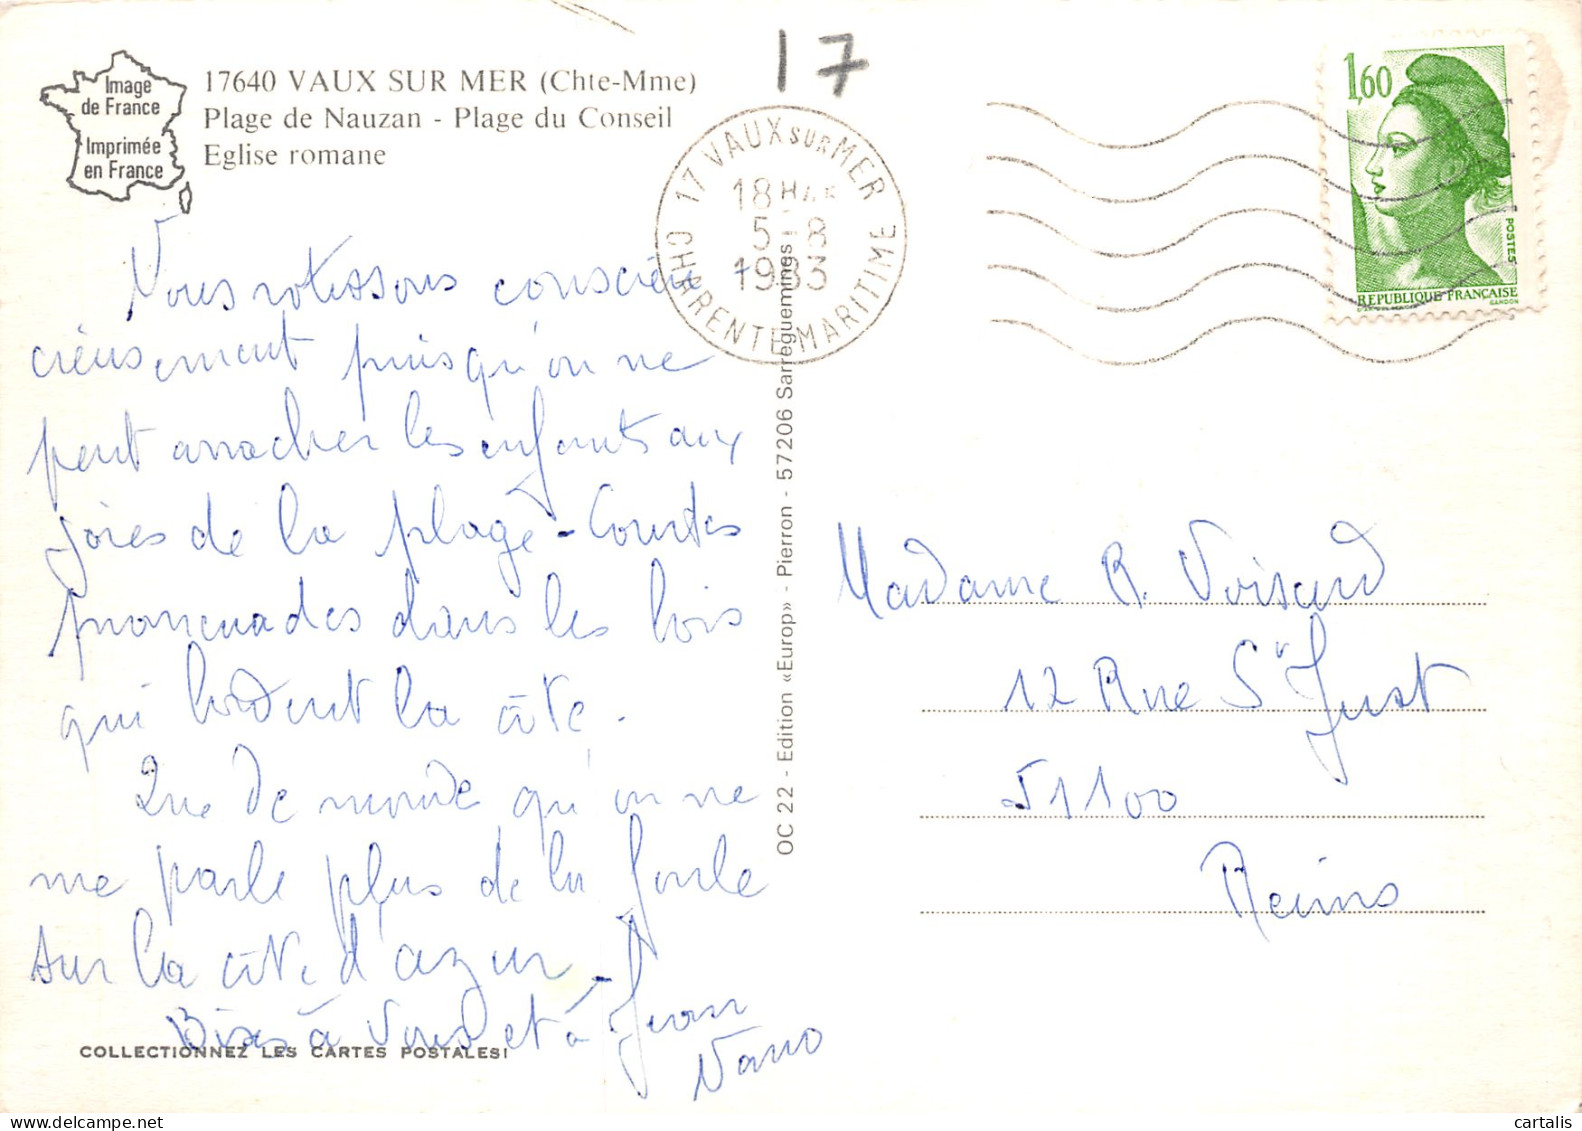 17
Image
de France
Imprimée
en France
17640 VAUX SUR MER (Chte-Mme)
Plage de Nauzan - Plage du Conseil
Eglise romane
17 VAUX SUR MER
18 H
5 - 8
1983
CHARENTE MARITIME
1,60
POSTES
REPUBLIQUE FRANÇAISE
GANDON
Nous rotissons conscien
cieusement puisqu'on ne
peut arracher les enfants aux
joies de la plage - Courtes
promenades dans les bois
qui bordent la côte.
Que de monde qu'on ne
me parle plus de la foule
sur la côte d'azur -
Bises à Vous et à Jean
COLLECTIONNEZ LES CARTES POSTALES!
OC 22 - Edition «Europ» - Pierron - 57206 Sarreguemines
Madame R. Voisard
12 Rue St Just
51100
Reims
cartalis